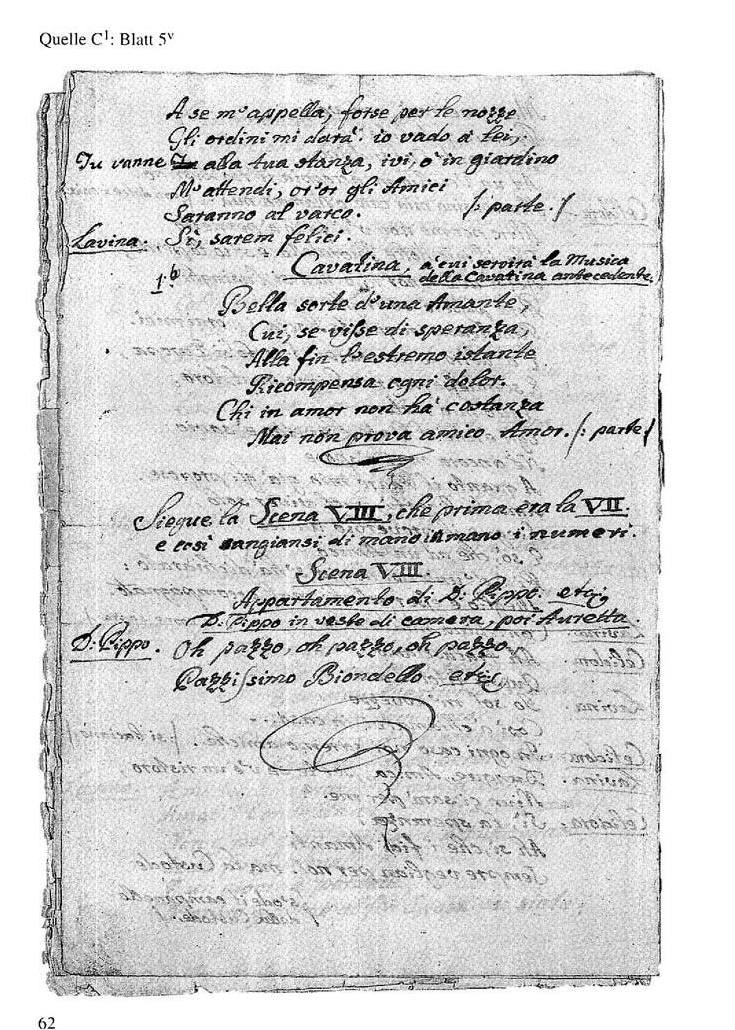 Quelle C¹: Blatt 5ᵛ
A se m'appella, forse per le nozze
Gli ordini mi darà: io vado a lei,
Tu vanne alla tua stanza, ivi, o in giardino
M'attendi, or'or gli Amici
Saranno al varco. /: parte. /
Lavina. Sì, sarem felici.
Cavatina, a' cui servirà la Musica
della Cavatina antecedente.
Bella sorte d'una Amante,
Cui, se visse di speranza,
Alla fin l'estremo istante
Ricompensa ogni dolor.
Chi in amor non hà costanza
Mai non prova amico Amor. /: parte /
Siegue la Scena VIII, che prima era la VII.
e così cangiansi di mano in mano i numeri.
Scena VIII.
Appartamento di D: Pippo. etc:
D: Pippo in veste di camera, poi Auretta.
D: Pippo. Oh pazzo, oh pazzo, oh pazzo
Pazzissimo Biondello etc:
62